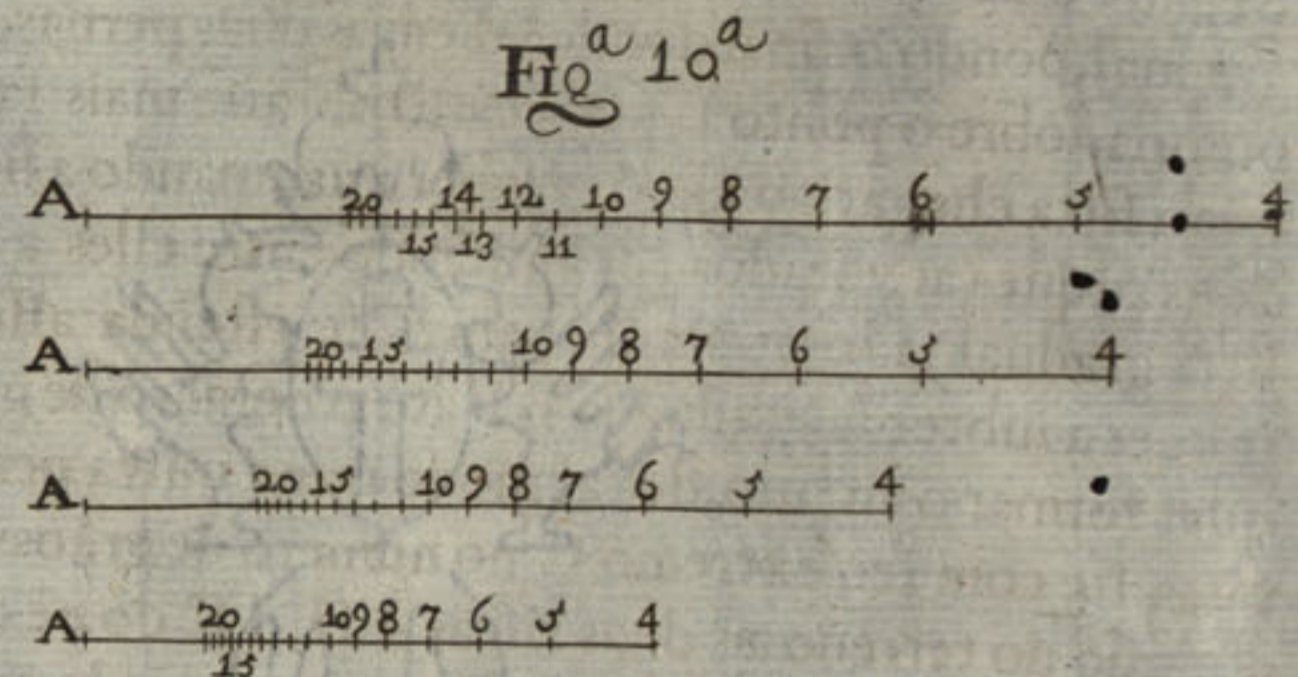 FIGª 10ª
A 20 14 12 10 9 8 7 6 5 4
15 13 11
A 20 15 10 9 8 7 6 5 4
A 20 15 10 9 8 7 6 5 4
A 20 10 9 8 7 6 5 4
15